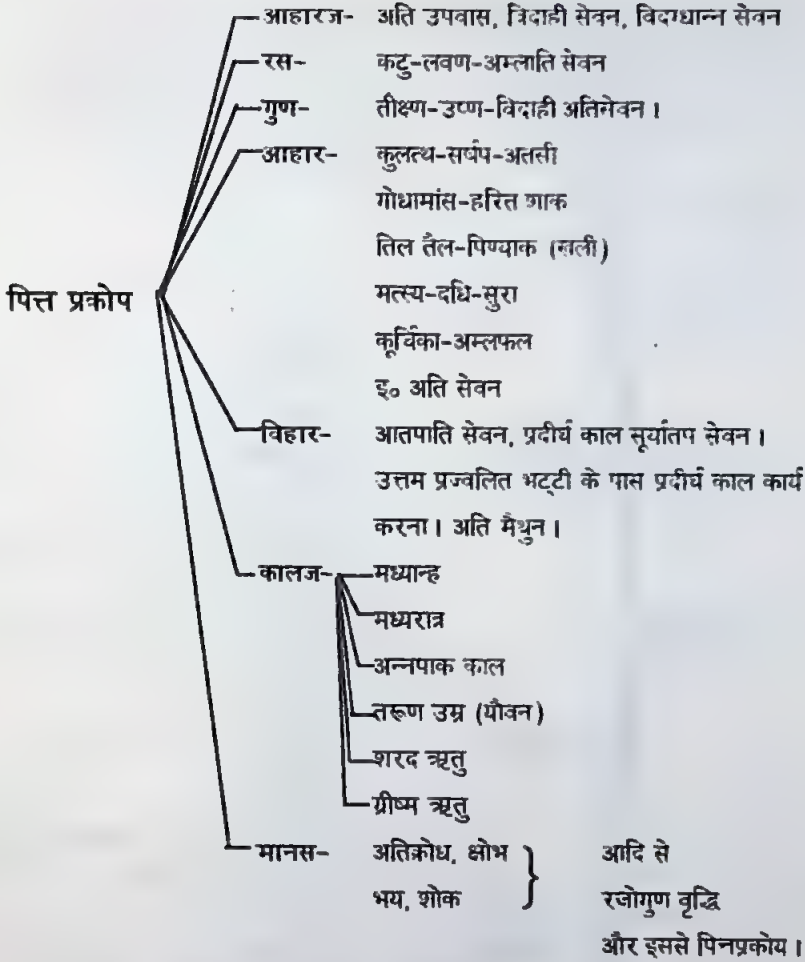 आहारज- अति उपवास, विदाही सेवन, विदग्धान्न सेवन
रस- कटु-लवण-अम्लाति सेवन
गुण- तीक्ष्ण-उष्ण-विदाही अतिसेवन ।
आहार- कुलत्थ-सर्षप-अतसी
गोधामांस-हरित शाक
तिल तैल-पिण्याक (खली)
पित्त प्रकोप
मत्स्य-दधि-सुरा
कूर्चिका-अम्लफल
इ० अति सेवन
विहार- आतपाति सेवन, प्रदीर्घ काल सूर्यातप सेवन ।
उत्तम प्रज्वलित भट्टी के पास प्रदीर्घ काल कार्य
करना । अति मैथुन ।
कालज- मध्यान्ह
मध्यरात्र
अन्नपाक काल
तरूण उम्र (यौवन)
शरद ऋतु
ग्रीष्म ऋतु
मानस- अतिक्रोध, क्षोभ } आदि से
भय, शोक रजोगुण वृद्धि
और इससे पित्तप्रकोप ।